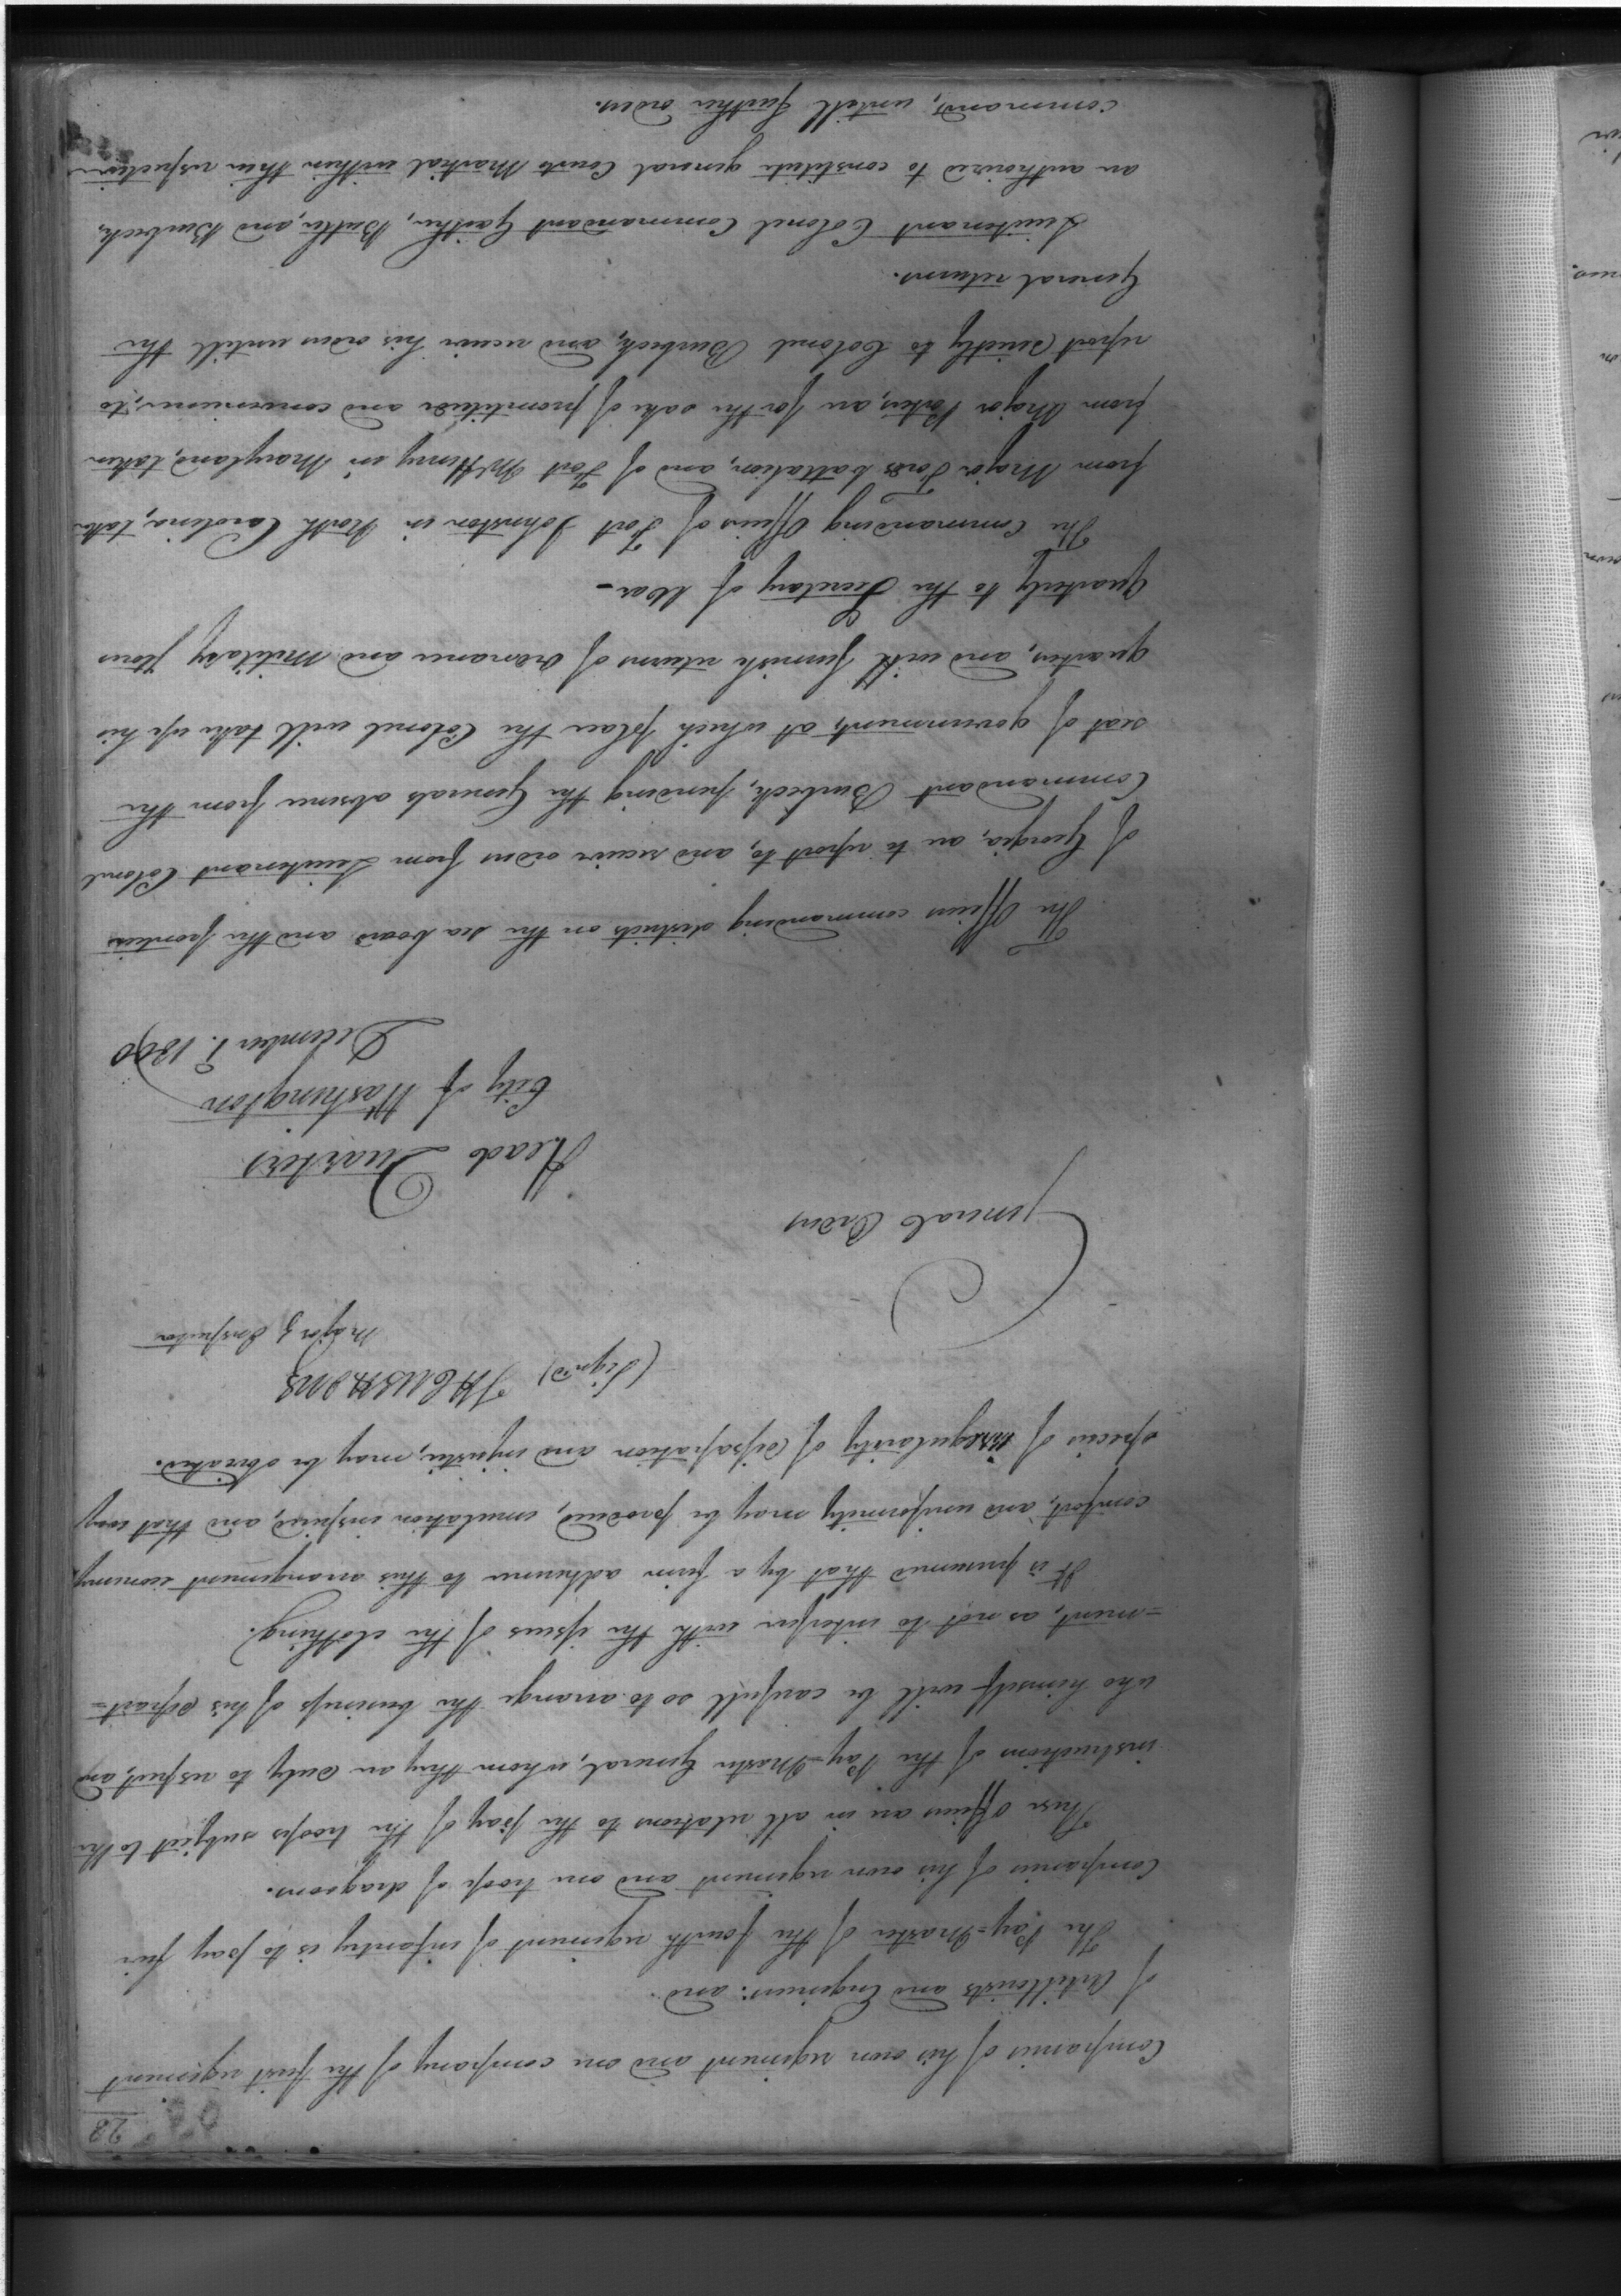 28
Companies of his own regiment and one company of the first regiment
of Artillerists and Engineers: and
The Pay=Master of the fourth regiment of infantry is to pay five
Companies of his own regiment and one troop of dragoons.
These officers are in all relations to the pay of the troops subject to the
instructions of the Pay-Master General, whom they are duly to respect, and
who himself will be carefull so to arrange the business of his depart=
=ment, as not to interfere with the issues of the clothing.
It is presumed that by a firm adherence to this arrangement economy,
comfort, and uniformity may be produced, emulation inspired, and that every
species of irregularity of dissipation and injustice, may be obviated.
(Sign'd) T H CUSHING
Major & Inspector
General Orders
Head Quarters
City of Washington
December 1. 1800
The Officers commanding districts on the sea board and the frontiers
of Georgia, are to report to, and receive orders from Lieutenant Colonel
Commandant Burbeck, pending the Generals absence from the
seat of government, at which place the Colonel will take up his
quarters, and will furnish returns of Ordnance and Military stores
quarterly to the Secretary of War —
The Commanding Officers of Fort Johnston in North Carolina, taken
from Major Fords battalion, and of Fort McHenry in Maryland, taken
from Major Porters, are for the sake of promptitude and convenience, to
report directly to Colonel Burbeck, and receive his orders untill the
General returns.
Lieutenant Colonel Commandant Gaither, Butler, and Burbeck,
are authorized to constitute general Courts Martial within their respective
command, untill further orders.